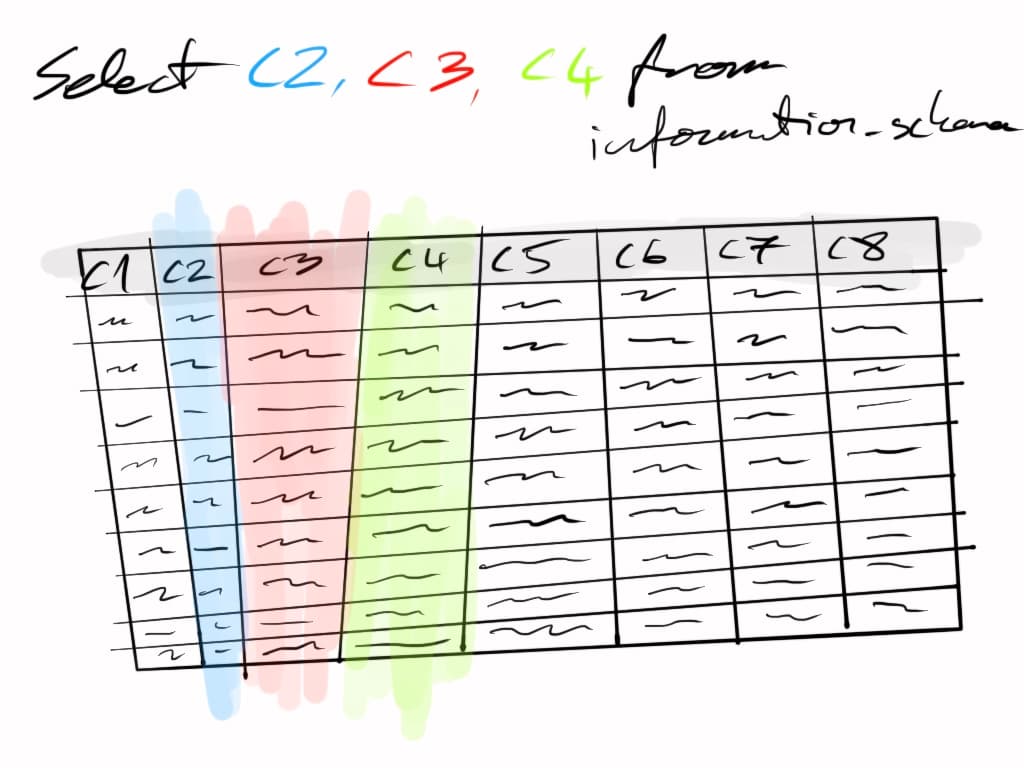 Select C2, C3, C4 from
information_schema
C1 C2 C3 C4 C5 C6 C7 C8